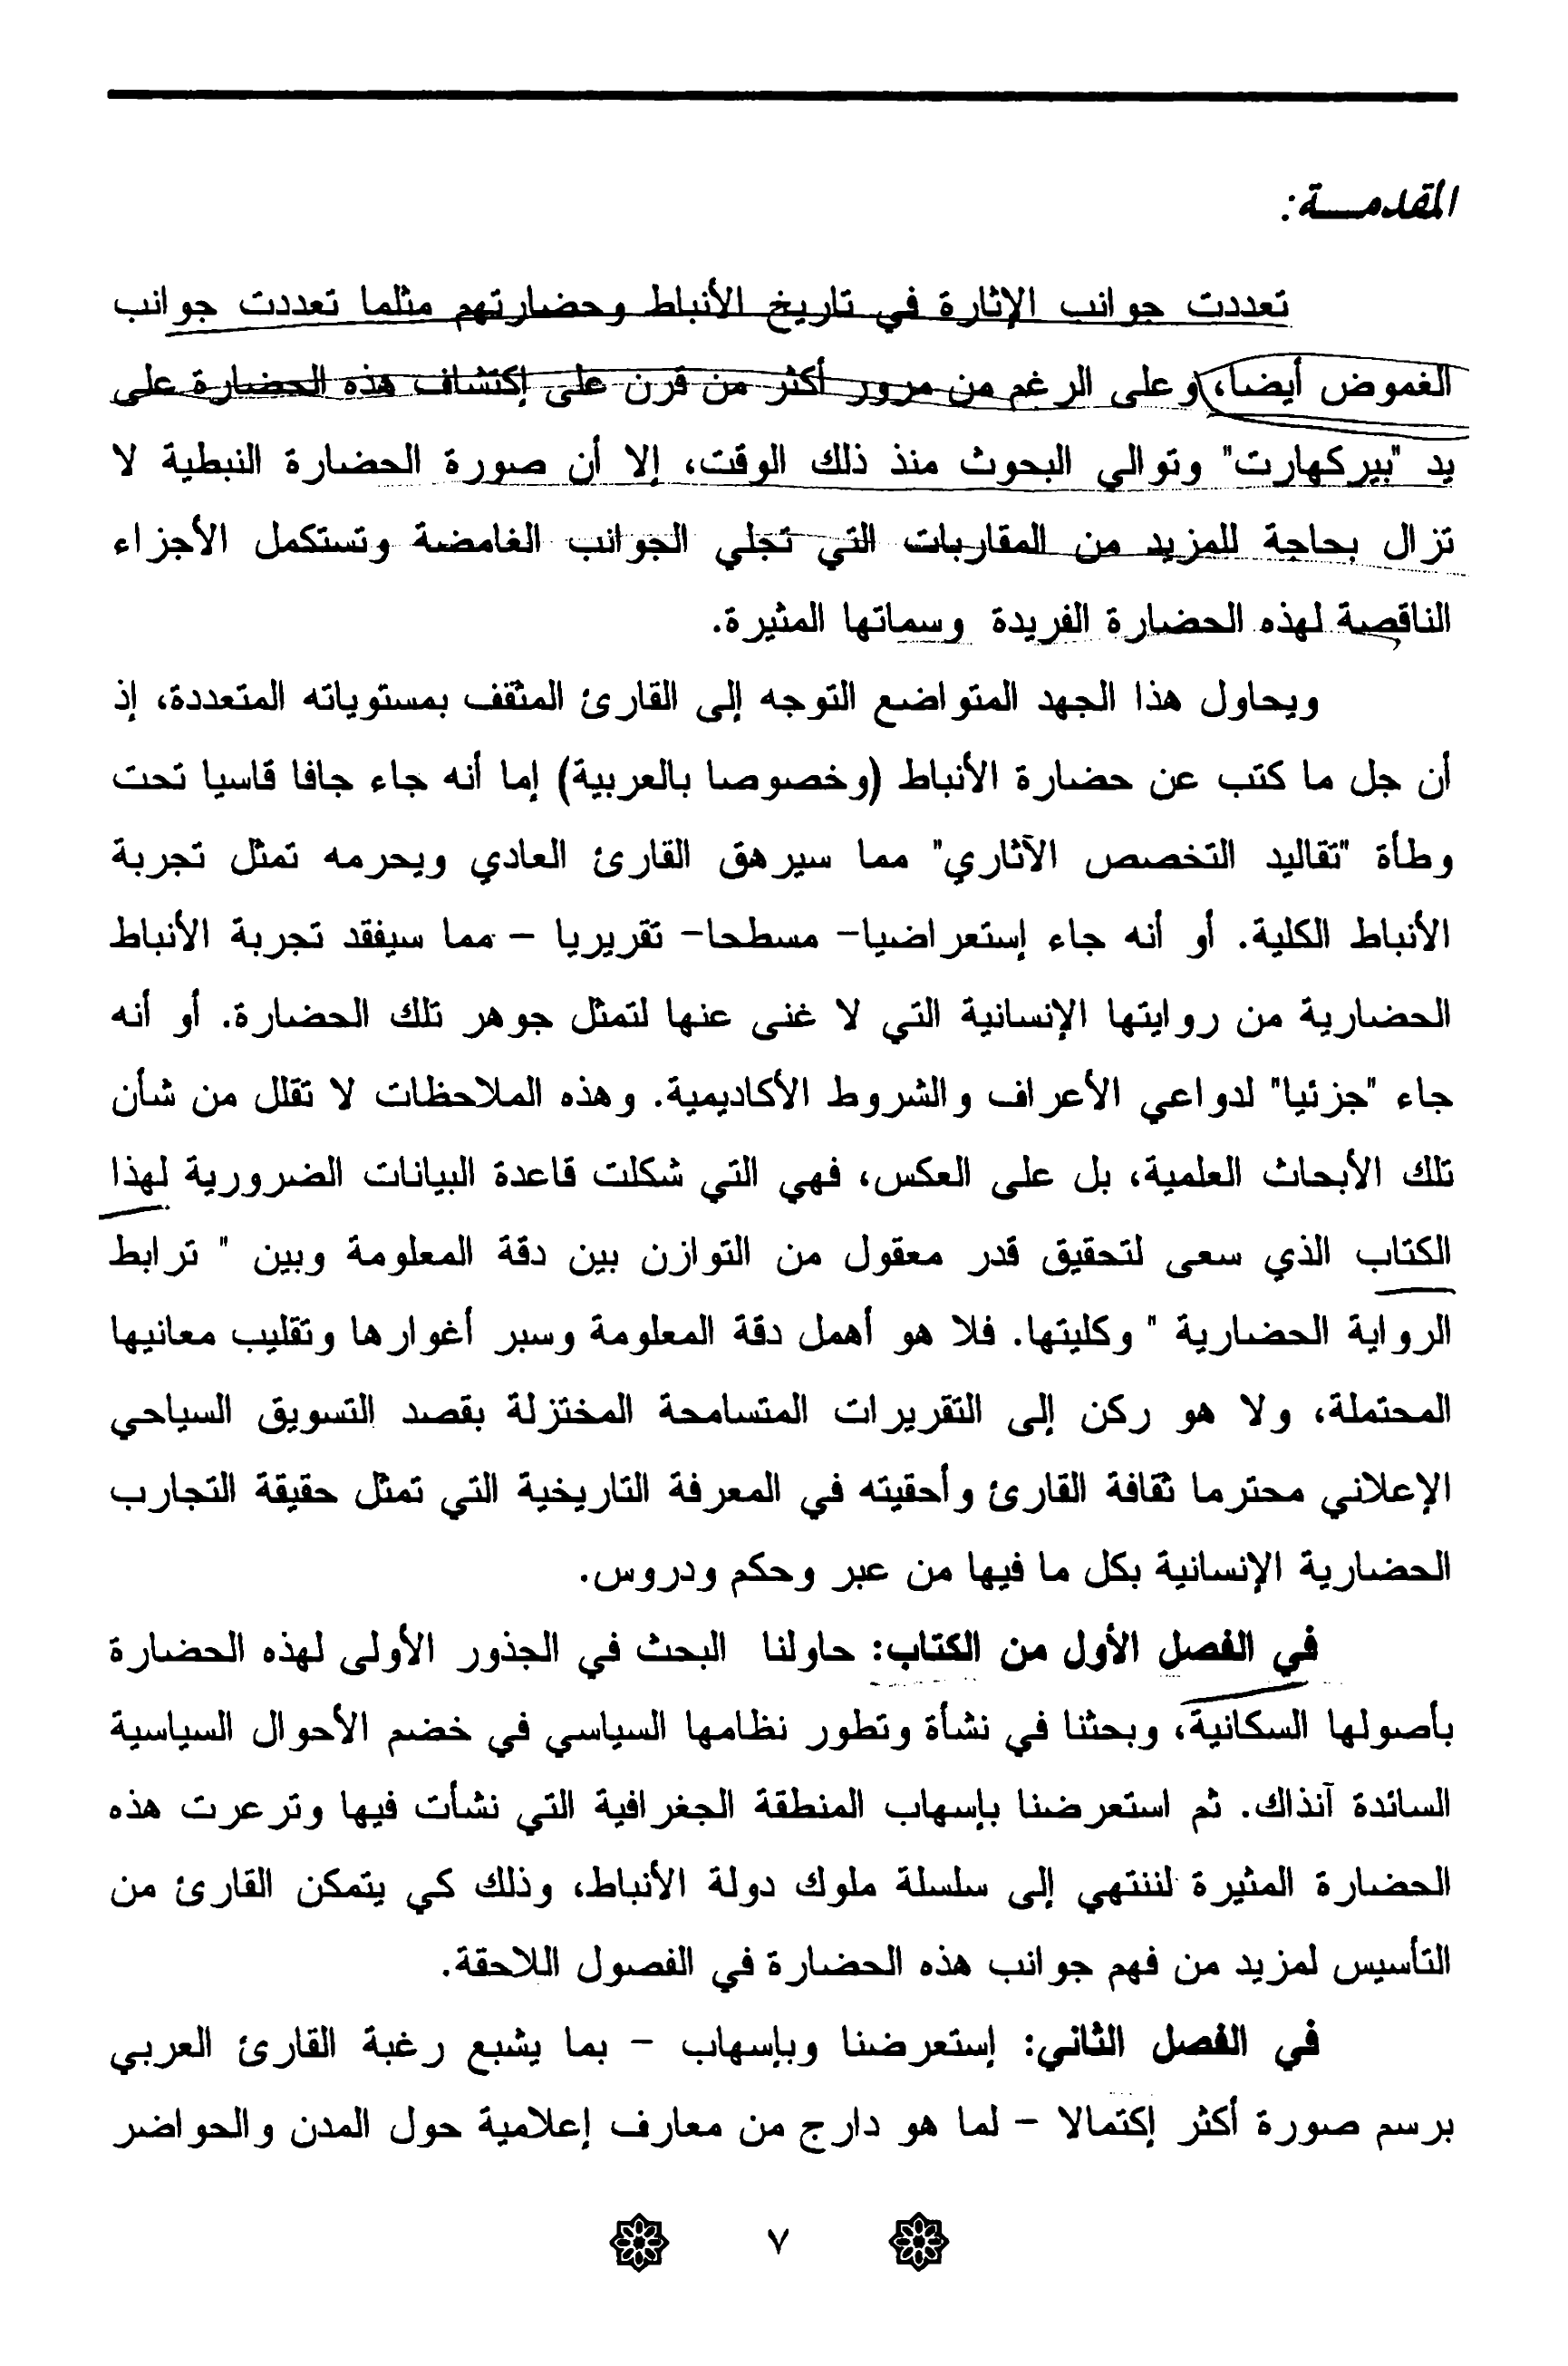 المقدمـــة:
تعددت جوانب الإثارة في تاريخ الأنباط وحضارتهم مثلما تعددت جوانب
الغموض أيضا، وعلى الرغم من مرور أكثر من قرن على إكتشاف هذه الحضارة على
يد "بيركهارت" وتوالي البحوث منذ ذلك الوقت، إلا أن صورة الحضارة النبطية لا
تزال بحاجة للمزيد من المقاربات التي تجلي الجوانب الغامضة وتستكمل الأجزاء
الناقصة لهذه الحضارة الفريدة وسماتها المثيرة.
ويحاول هذا الجهد المتواضع التوجه إلى القارئ المثقف بمستوياته المتعددة، إذ
أن جل ما كتب عن حضارة الأنباط (وخصوصا بالعربية) إما أنه جاء جافا قاسيا تحت
وطأة "تقاليد التخصص الآثاري" مما سيرهق القارئ العادي ويحرمه تمثل تجربة
الأنباط الكلية. أو أنه جاء إستعراضيا- مسطحا- تقريريا - مما سيفقد تجربة الأنباط
الحضارية من روايتها الإنسانية التي لا غنى عنها لتمثل جوهر تلك الحضارة. أو أنه
جاء "جزئيا" لدواعي الأعراف والشروط الأكاديمية. وهذه الملاحظات لا تقلل من شأن
تلك الأبحاث العلمية، بل على العكس، فهي التي شكلت قاعدة البيانات الضرورية لهذا
الكتاب الذي سعى لتحقيق قدر معقول من التوازن بين دقة المعلومة وبين " ترابط
الرواية الحضارية " وكليتها. فلا هو أهمل دقة المعلومة وسبر أغوارها وتقليب معانيها
المحتملة، ولا هو ركن إلى التقريرات المتسامحة المختزلة بقصد التسويق السياحي
الإعلاني محترما ثقافة القارئ وأحقيته في المعرفة التاريخية التي تمثل حقيقة التجارب
الحضارية الإنسانية بكل ما فيها من عبر وحكم ودروس.
في الفصل الأول من الكتاب: حاولنا البحث في الجذور الأولى لهذه الحضارة
بأصولها السكانية، وبحثنا في نشأة وتطور نظامها السياسي في خضم الأحوال السياسية
السائدة آنذاك. ثم استعرضنا بإسهاب المنطقة الجغرافية التي نشأت فيها وترعرت هذه
الحضارة المثيرة لننتهي إلى سلسلة ملوك دولة الأنباط، وذلك كي يتمكن القارئ من
التأسيس لمزيد من فهم جوانب هذه الحضارة في الفصول اللاحقة.
في الفصل الثاني: إستعرضنا وبإسهاب - بما يشبع رغبة القارئ العربي
برسم صورة أكثر إكتمالا - لما هو دارج من معارف إعلامية حول المدن والحواضر
٧